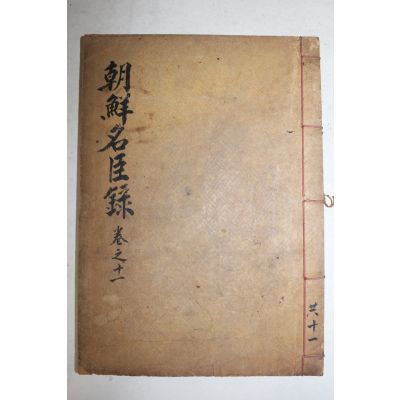 朝鮮名臣錄
卷之十一
共十一